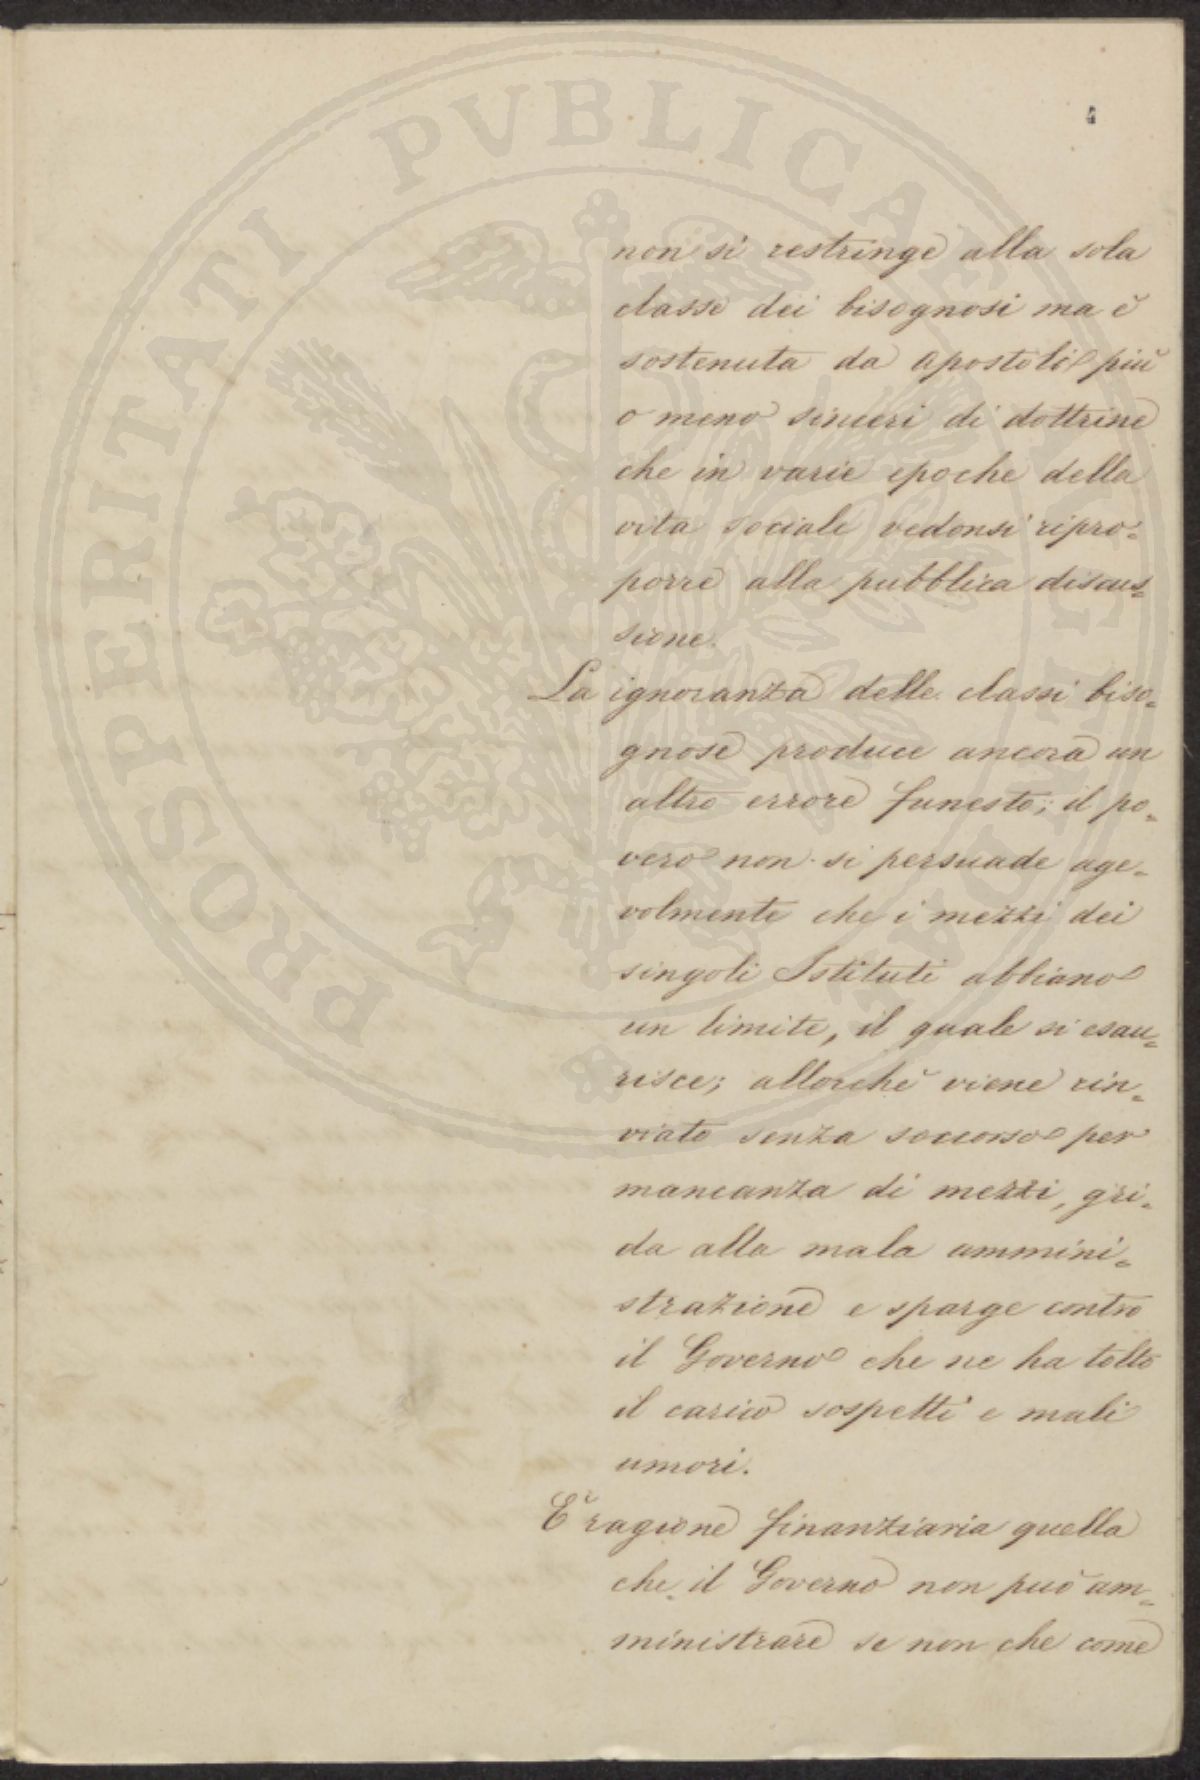 4
non si restringe alla sola
classe dei bisognosi ma è
sostenuta da apostoli più
o meno sinceri di dottrine
che in varie epoche della
vita sociale vedonsi ripro=
porre alla pubblica discus=
sione.
La ignoranza delle classi biso=
gnose produce ancora un
altro errore funesto; il po=
vero non si persuade age=
volmente che i mezzi dei
singoli Istituti abbiano
un limite, il quale si esau=
risce; allorchè viene rin=
viato senza soccorso per
mancanza di mezzi, gri=
da alla mala ammini=
strazione e sparge contro
il Governo che ne ha tolto
il carico sospetti e mali
umori.
È ragione finanziaria quella
che il Governo non può am=
ministrare se non che come
PROSPERITATI PVBLICAE